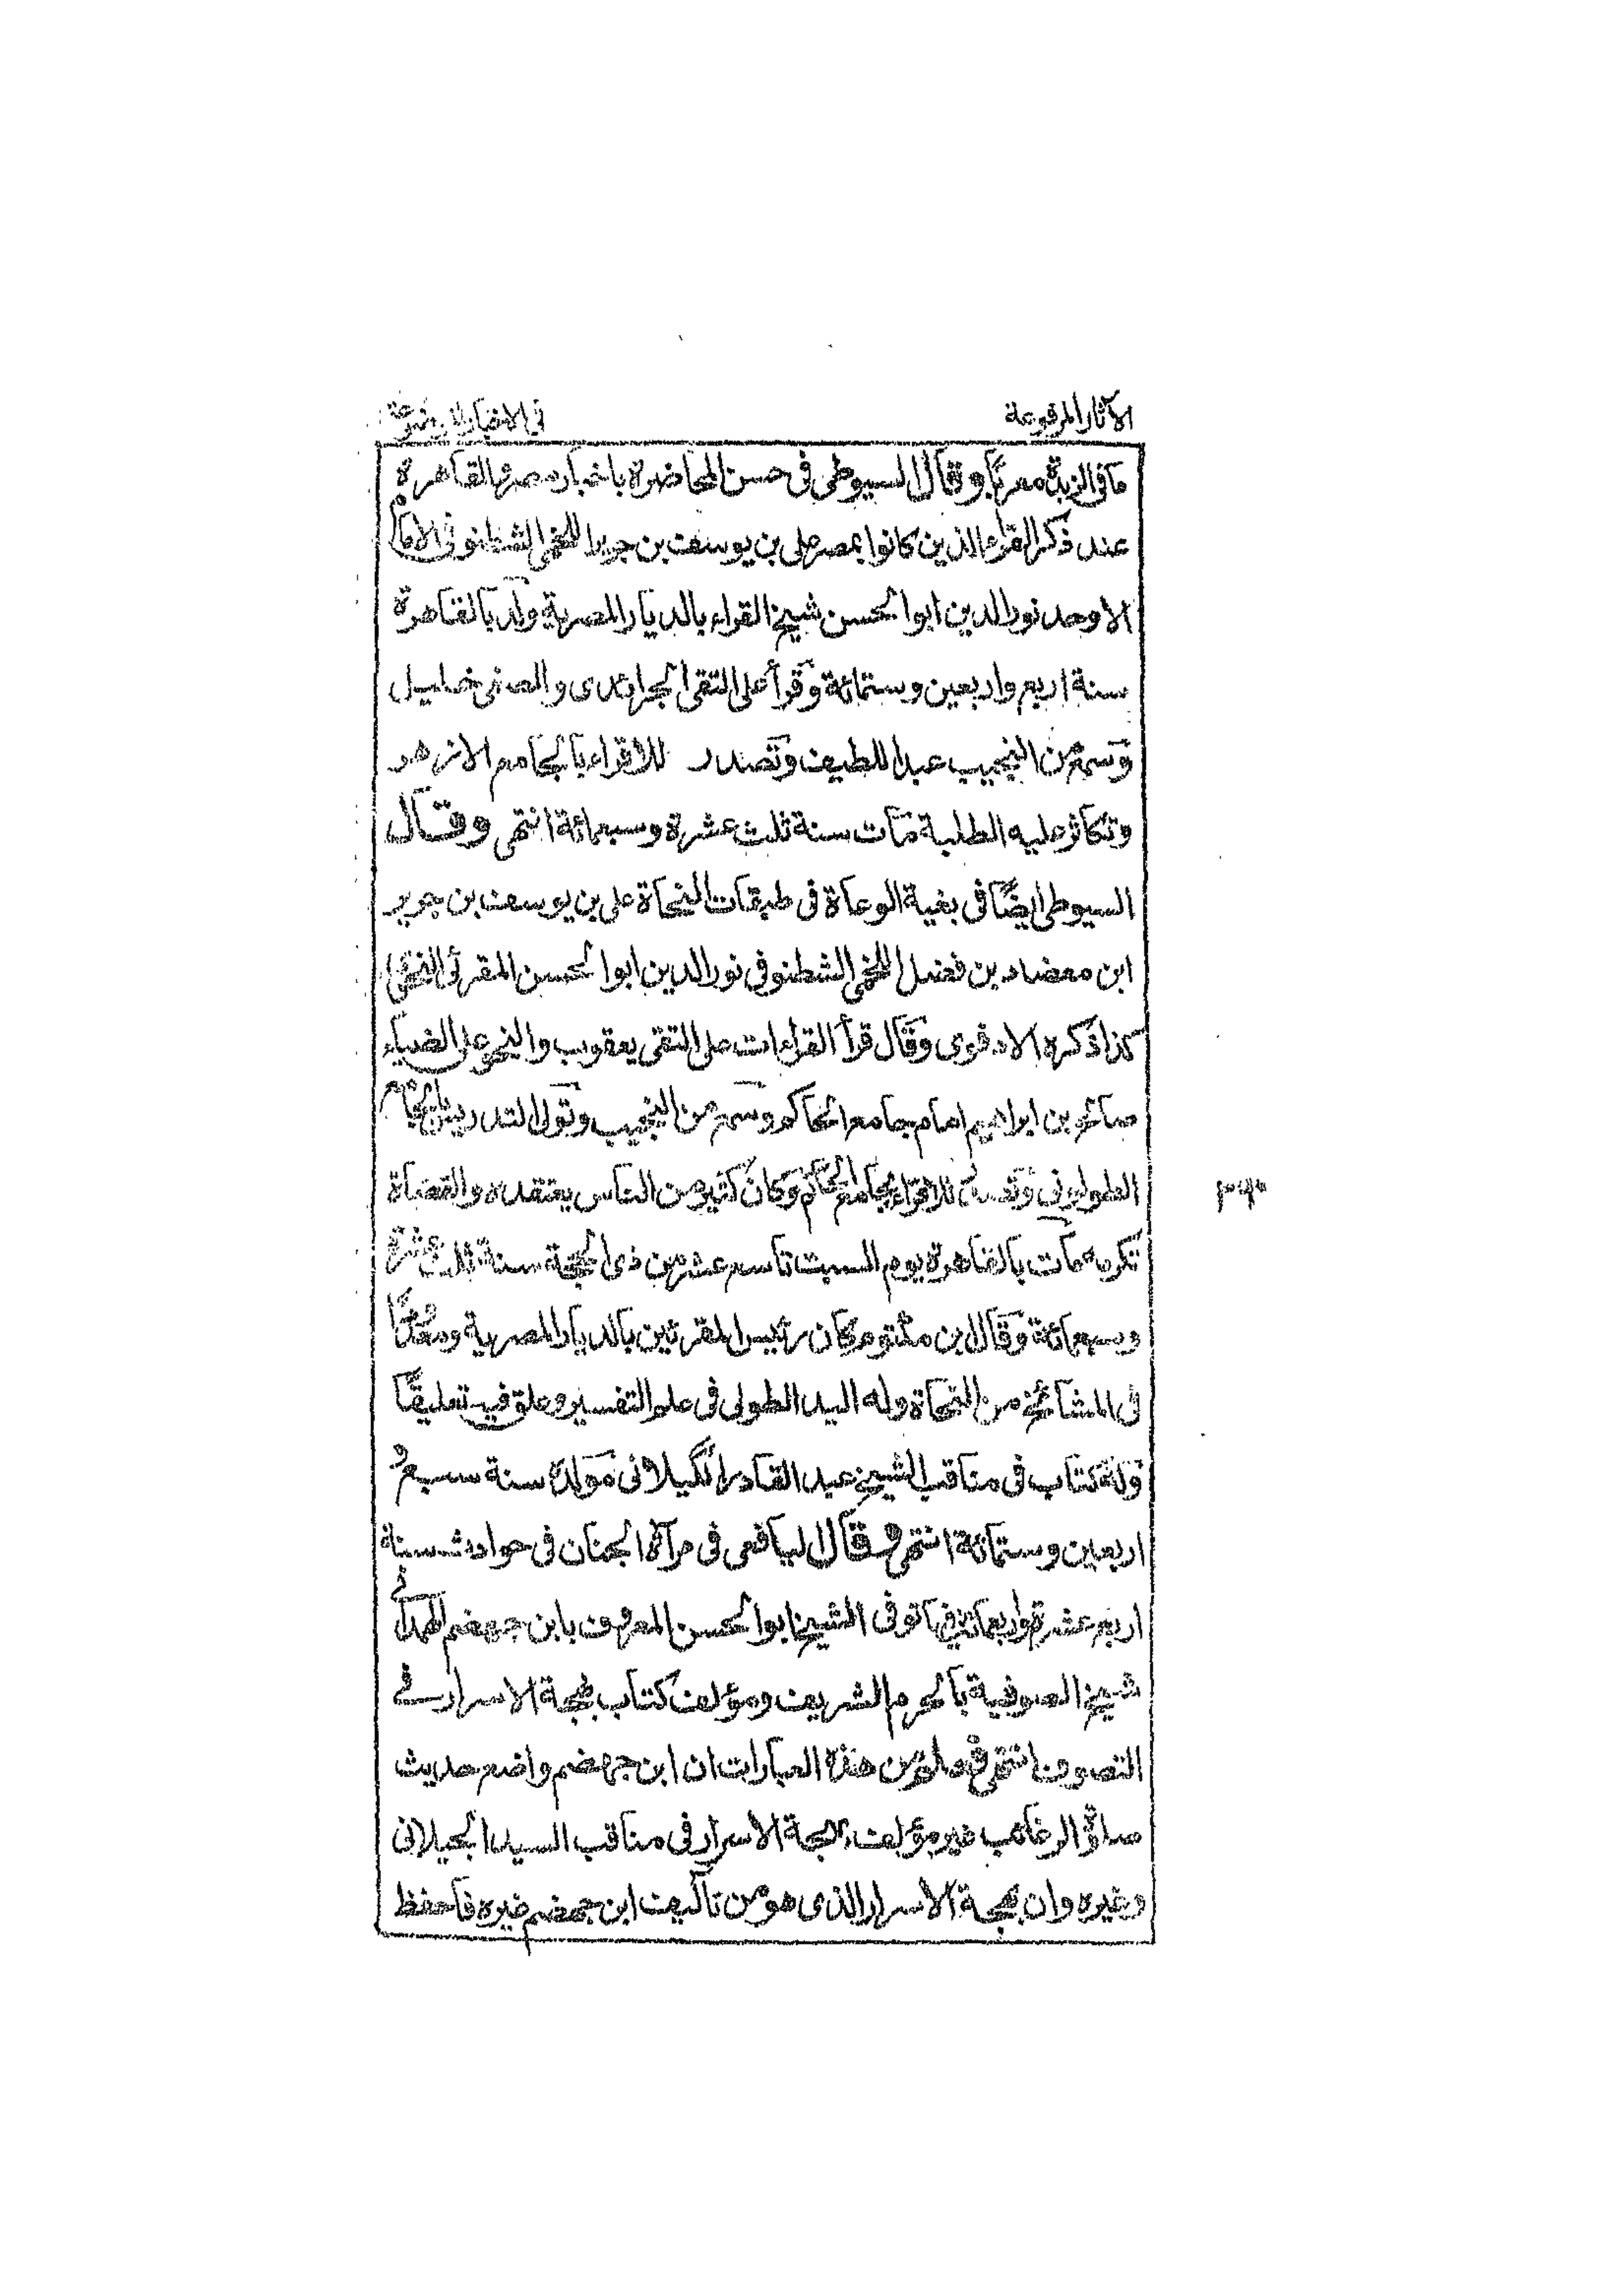 الآثار المرفوعة
في الاخبار
ما في الزبدة معربًا وقال السيوطى فى حسن المحاضرة باخبار مصر والقاهرة
عند ذكر القراء الذين كانوا بمصر على بن يوسف بن جرير اللخمى الشطنوفى الامام
الاوحد نور الدين ابوالحسن شيخ القراء بالديار المصرية ولد بالقاهرة
سنة اربع واربعين وستمائة وقرأ على التقى الجرائدى والصفى خليل
وسمع من النجيب عبد اللطيف وتصدر للاقراء بالجامع الازهر
وتكاثر عليه الطلبة مات سنة ثلث عشرة وسبعمائة انتهى وقال
السيوطى ايضًا فى بغية الوعاة فى طبقات النحاة على بن يوسف بن جرير
ابن معضاد بن فضل اللخمى الشطنوفى نور الدين ابوالحسن المقرئ النحوى
كذا ذكره الادفوى وقال قرأ القراءات على التقى يعقوب والنحو على الضياء
صالح بن ابراهيم امام جامع الحاكم وسمع من النجيب وتولى التدريس بالجامع
الطولونى وتصدر للاقراء بجامع الحاكم وكان كثير من الناس يعتقده والقضاة
تكرمه مات بالقاهرة يوم السبت تاسع عشر من ذى الحجة سنة ثلث عشرة
وسبعمائة وقال ابن مكتوم كان رئيس المقرئين بالديار المصرية ومعدودًا
فى المشائخ من النحاة وله اليد الطولى فى علم التفسير وعلق فيه تعليقًا
وله كتاب فى مناقب الشيخ عبد القادر الكيلانى مولده سنة سبع و
اربعين وستمائة انتهى وقال اليافعى فى مرآة الجنان فى حوادث سنة
اربع عشرة واربعمائة فيها توفى الشيخ ابوالحسن المعروف بابن جهضم الهمدانى
شيخ الصوفية بالحرم الشريف ومؤلف كتاب بهجة الاسرار فى
التصوف انتهى فعلم من هذه العبارات ان ابن جهضم واضع حديث
صلوة الرغائب غير مؤلف بهجة الاسرار فى مناقب السيد الجيلانى
وغيره وان بهجة الاسرار الذى هو من تاليف ابن جهضم غيره فاحفظ